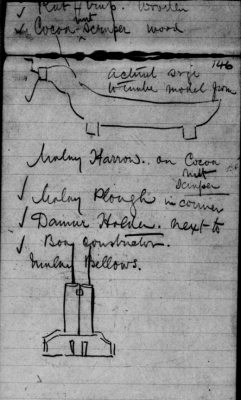 ✓ Wooden
✓ Cocoa-nut Scraper wood
146
actual size
to make model from
Malay Harrow. on Cocoa
nutt
scraper
✓ Malay Plough in corner
✓ Damar Holder. next to
✓ Boa Constrictor.
Malay Bellows.